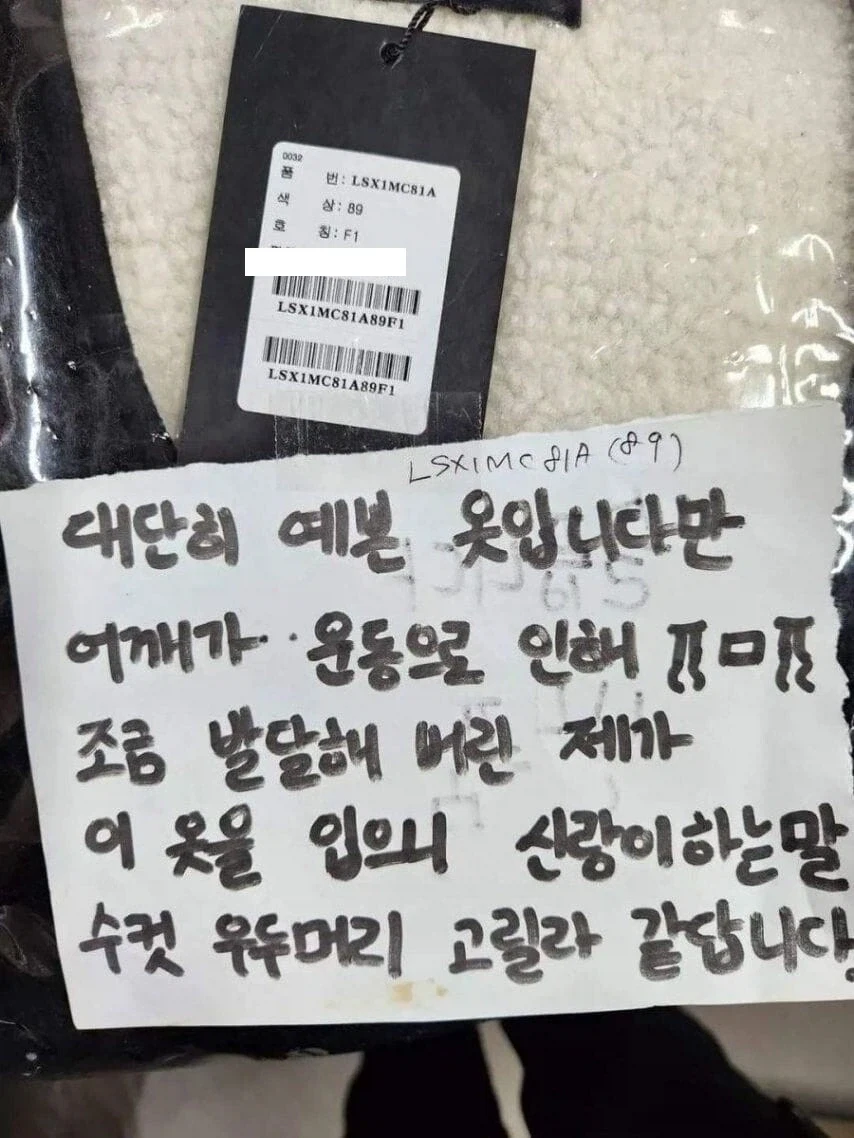 0032
품 번: LSX1MC81A
색 상: 89
호 칭: F1
LSX1MC81A89F1
LSX1MC81A89F1
LSX1MC81A (89)
대단히 예쁜 옷입니다만
어깨가.. 운동으로 인해 ㅠㅁㅠ
조금 발달해 버린 제가
이 옷을 입으니 신랑이하는말
수컷 우두머리 고릴라 같답니다.